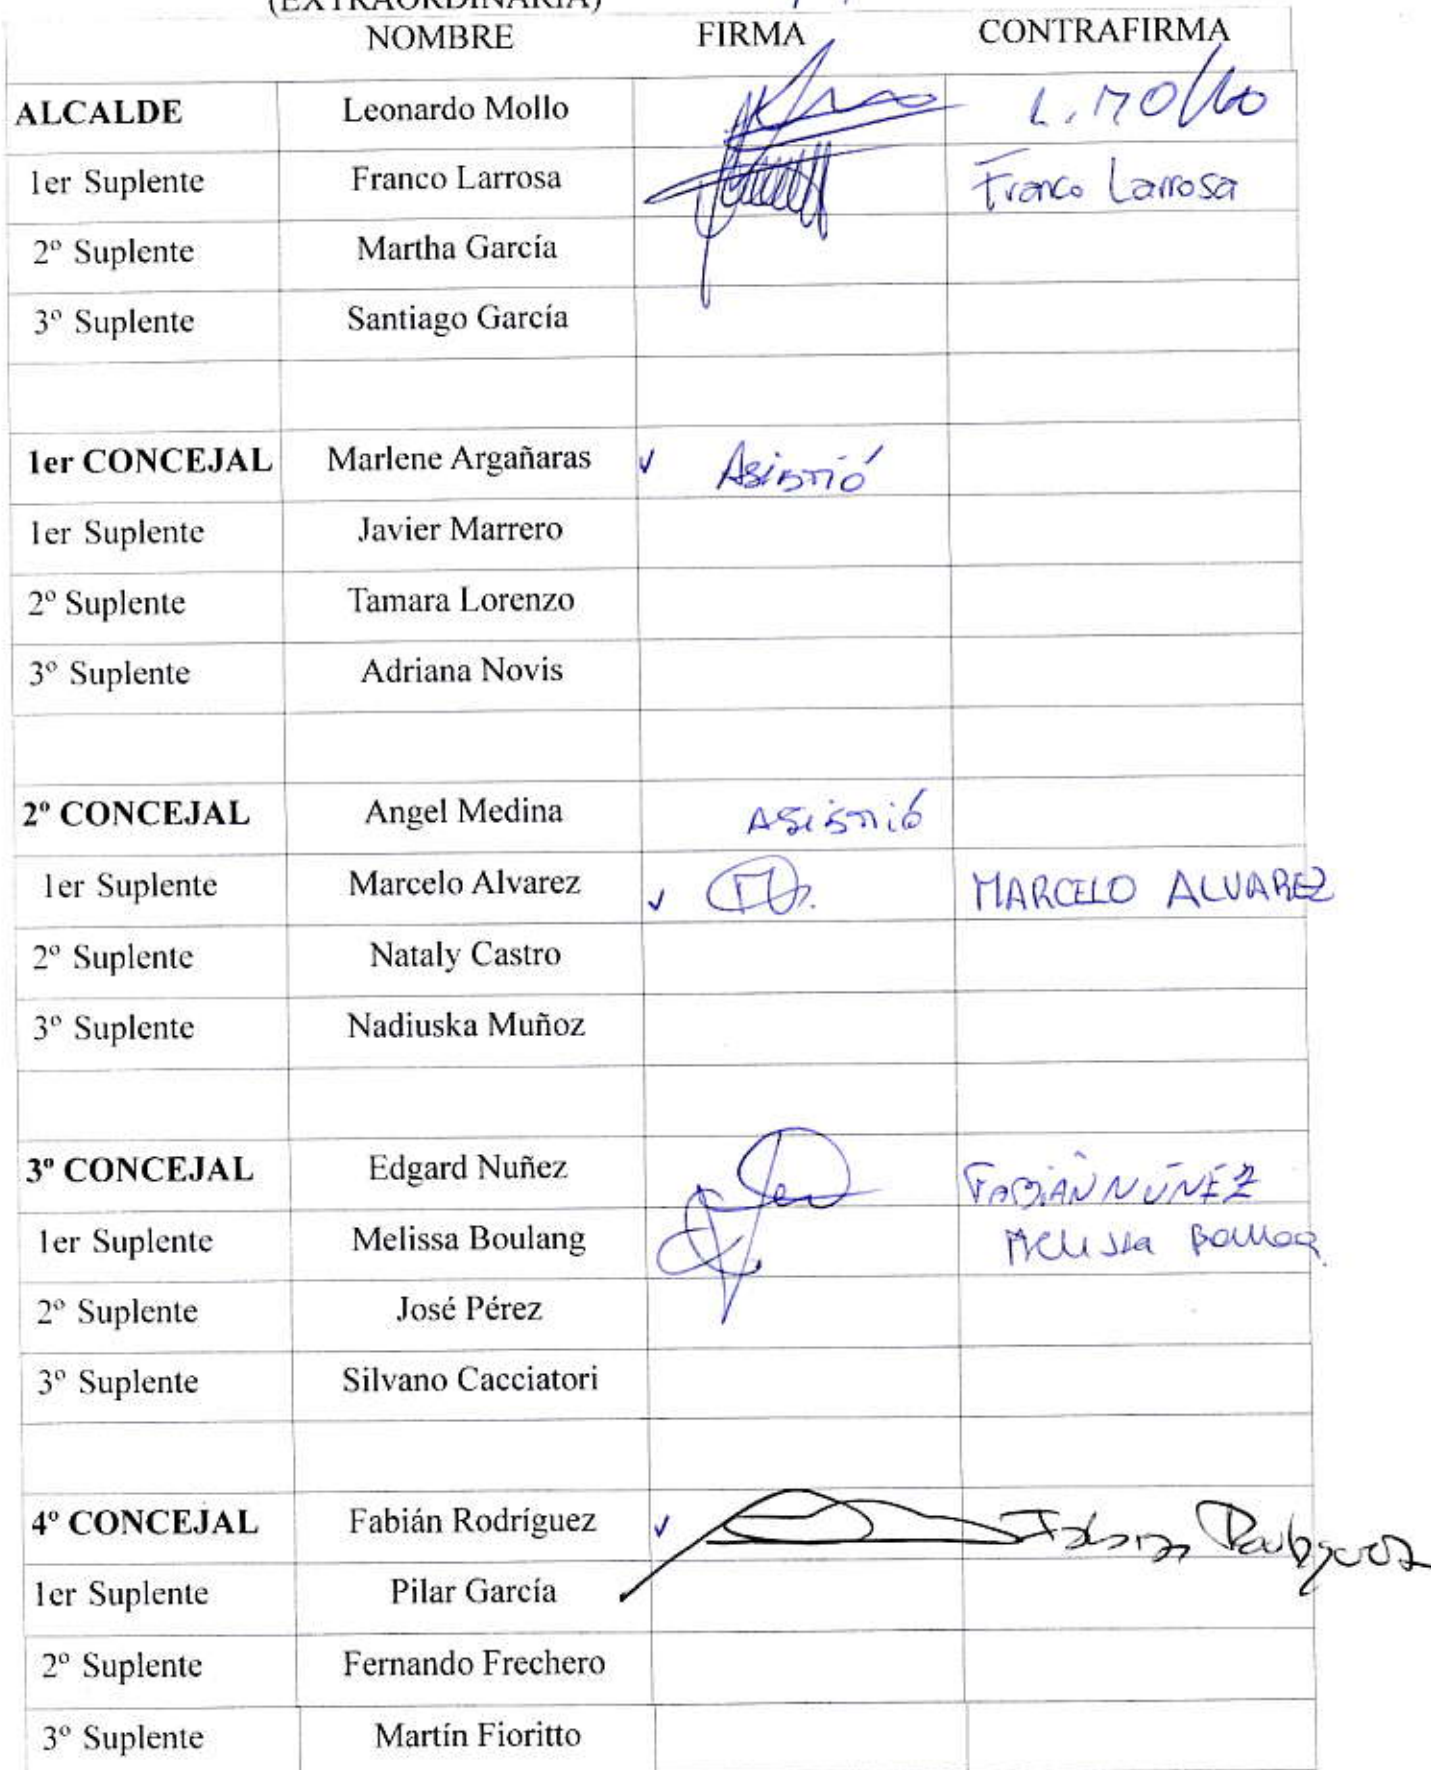 (EXTRAORDINARIA)
NOMBRE FIRMA CONTRAFIRMA
ALCALDE Leonardo Mollo L. MOllo
1er Suplente Franco Larrosa Franco Larrosa
2º Suplente Martha García
3º Suplente Santiago García
1er CONCEJAL Marlene Argañaras Asistió
1er Suplente Javier Marrero
2º Suplente Tamara Lorenzo
3º Suplente Adriana Novis
2º CONCEJAL Angel Medina Asistió
1er Suplente Marcelo Alvarez MARCELO ALVAREZ
2º Suplente Nataly Castro
3º Suplente Nadiuska Muñoz
3º CONCEJAL Edgard Nuñez FABIÁN NÚÑEZ
1er Suplente Melissa Boulang Melissa
2º Suplente José Pérez
3º Suplente Silvano Cacciatori
4º CONCEJAL Fabián Rodríguez Fabian Rodriguez
1er Suplente Pilar García
2º Suplente Fernando Frechero
3º Suplente Martín Fioritto